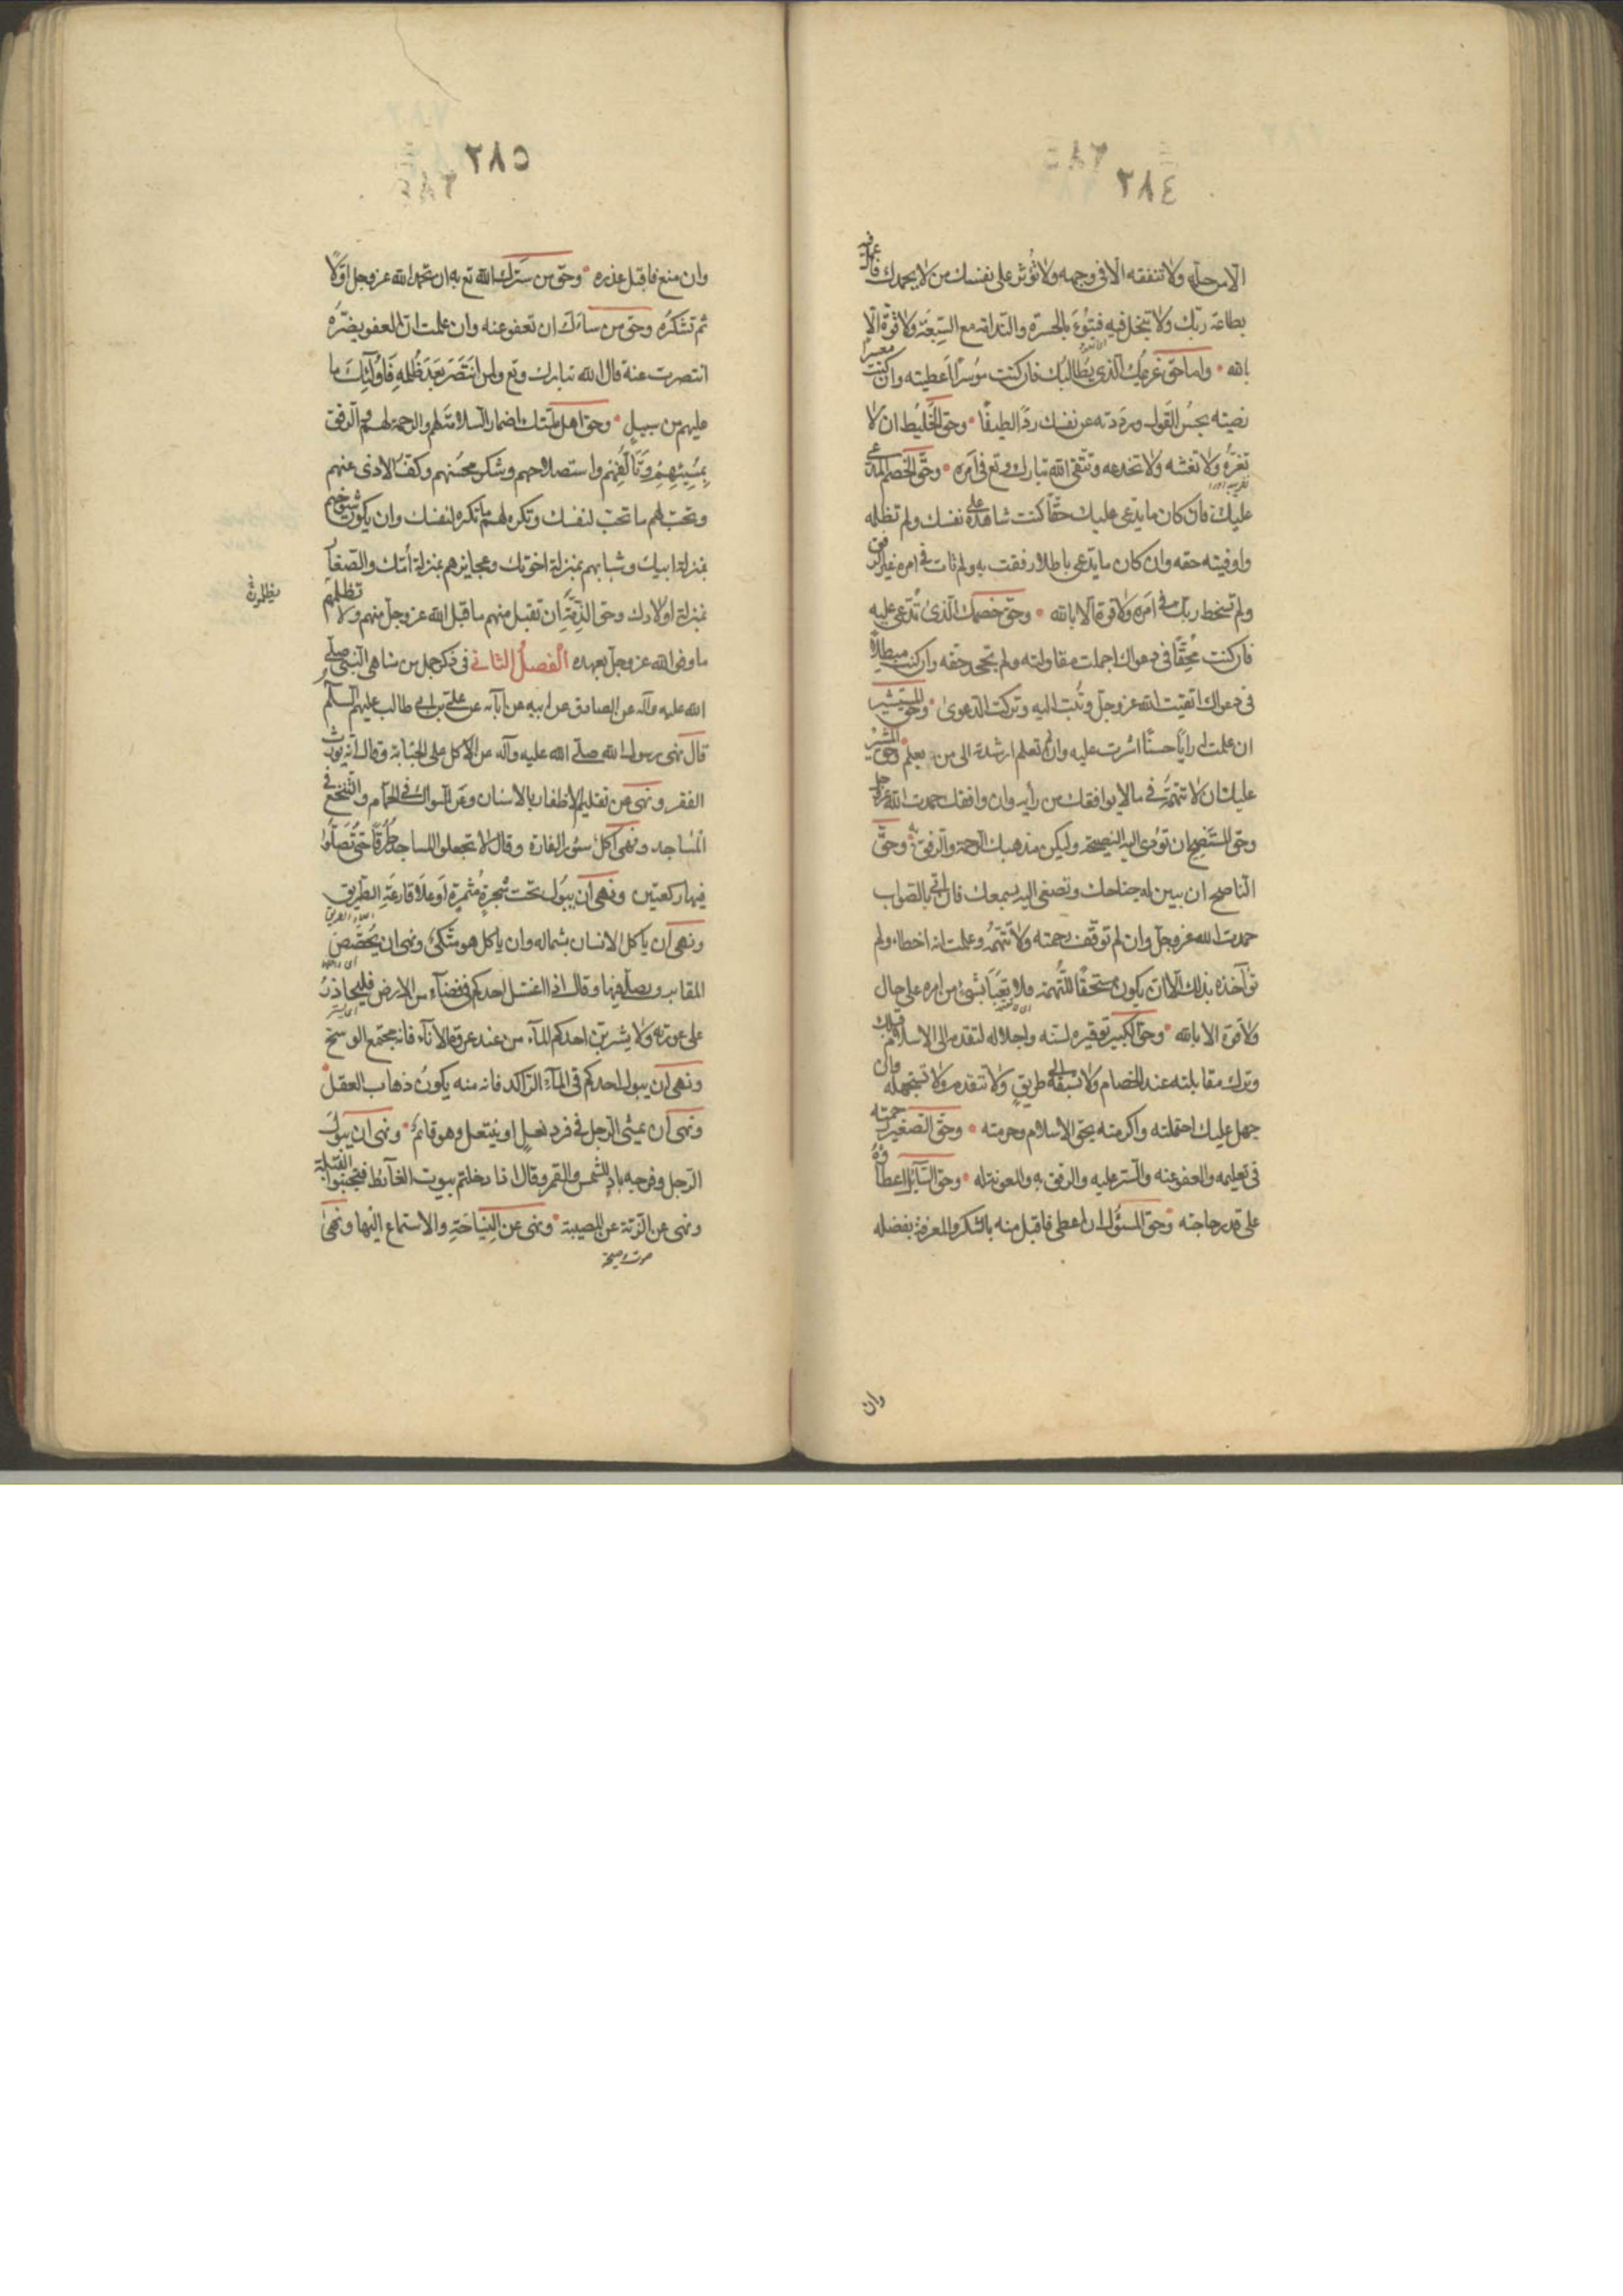 ٣٨٤
الا من حله ولا تنفقه الا فی وجهه ولا تؤثر علی نفسك من لا یحمدك فاعمل فیه
بطاعة ربّك ولا تبخل فیه فتبوء بالحسرة والندامة مع التبعة ولا قوة الّا
بالله وامّا حق غریمك الذی یطالبك فان كنت موسرًا اعطیته وان كنت معسرا
رضیته بحسن القول ورددته عن نفسك ردّا لطیفًا وحق الخلیط ان لا
تغرّه ولا تغشه ولا تخدعه وتتقی الله تبارك وتع فی امره وحقّ الخصم المدعی
علیك فان كان ما یدعی علیك حقّا كنت شاهده علی نفسك ولم تظلمه
واوفیته حقه وان كان ما یدعی باطلا رفقت به ولم تات فی امره غیر الرفق
ولم تسخط ربّك فی امره ولا قوة الا بالله وحق خصمك الذی تدّعی علیه
فان كنت محقّا فی دعواك اجملت مقاولته ولم تجحد حقه وان كنت مبطلا
فی دعواك اتقیت الله عز وجلّ وتبت الیه وتركت الدعوی وحق المستشیر
ان علمت له رایًا حسنًا اشرت علیه وان لم تعلم ارشدته الی من یعلم وحق المشیر
علیك ان لا تتهمه فی ما لا یوافقك من رأیه وان وافقك حمدت الله عز وجل
وحق المستنصح ان تؤدی الیه النصیحة ولیكن مذهبك الرحمة والرفق به وحقّ
الناصح ان یبین له جناحك وتصغی الیه بسمعك فان اتی بالصواب
حمدت الله عز وجلّ وان لم توفّق رحمته ولا تتّهمه وعلمت انه اخطاء ولم
تؤآخذه بذلك الّا ان یكون مستحقًا للتهمة فلا تعبأ بشئ من امره علی حال
ولا قوة الا بالله وحق الكبیر توقیره لسنه واجلاله لتقدمه الی الاسلام قبلك
وترك مقابلته عند الخصام ولا تسبقه الی طریق ولا تتقدمه ولا تستجهله وان
جهل علیك احتملته واكرمته بحق الاسلام وحرمته وحق الصغیر رحمته
فی تعلیمه والعفو عنه والستر علیه والرفق به والمعونة له وحق السآئل اعطاؤه
علی قدر حاجته وحق المسؤل ان اعطی فاقبل منه بالشكر والمعرفة بفضله
وان
٣٨٥
وان منع فاقبل عذره وحق من سرّك الله تع به ان تحمد الله عز وجل اوّلًا
ثم تشكره وحق من ساءك ان تعفو عنه وان علمت ان العفو یضرّه
انتصرت عنه قال الله تبارك وتع ولمن انتصر بعد ظلمه فاولئك ما
علیهم من سبیل وحق اهل ملّتك اضمار السلامة لهم والرحمة لهم والرفق
بمسیئهم وتألفهم واستصلاحهم وشكر محسنهم وكفّ الاذی عنهم
وتحبّ لهم ما تحبّ لنفسك وتكره لهم ما تكره لنفسك وان یكون شیوخهم
بمنزلة ابیك وشبابهم بمنزلة اخوتك وعجایزهم بمنزلة أمّك والصّغار
بمنزلة اولادك وحق الذّمّة ان تقبل منهم ما قبل الله عز وجلّ منهم ولا تظلمهم
ما وفوا لله عز وجلّ بعهده الفصل الثانی فی ذكر جمل من مناهی النبی صلی
الله علیه وآله عن الصادق عن ابیه عن آبآئه عن علی بن ابی طالب علیهم السلم
قال نهی رسول الله صلی الله علیه وآله عن الاكل علی الجنابة وقال انه یورث
الفقر ونهی عن تقلیم الاظفار بالاسنان وعن السواك فی الحمام والتنخّع فی
المساجد ونهی اكل سؤر الفارة وقال لا تجعلوا المساجد طرقًا حتی تصلّوا
فیها ركعتین ونهی ان یبول تحت شجرةٍ مثمرة او علی قارعة الطریق
ونهی ان یاكل الانسان بشماله وان یاكل وهو متّكئ ونهی ان یجصّص
المقابر ویصلی فیها وقال اذا اغتسل احدكم فی فضآء من الارض فلیحاذر
علی عورته ولا یشربنّ احدكم المآء من عند عروة الانآء فانه مجتمع الوسخ
ونهی ان یبول احدكم فی المآء الراكد فانه منه یكون ذهاب العقل
ونهی ان یمشی الرجل فی فرد نعلٍ او یتنعل وهو قائم ونهی ان یبول
الرجل وفرجه بادٍ للشمس والقمر وقال اذا دخلتم بیوت الغآئط فتجنبوا القبلة
ونهی عن الرّنّة عن المصیبة ونهی عن النیاحة والاستماع الیها ونهی